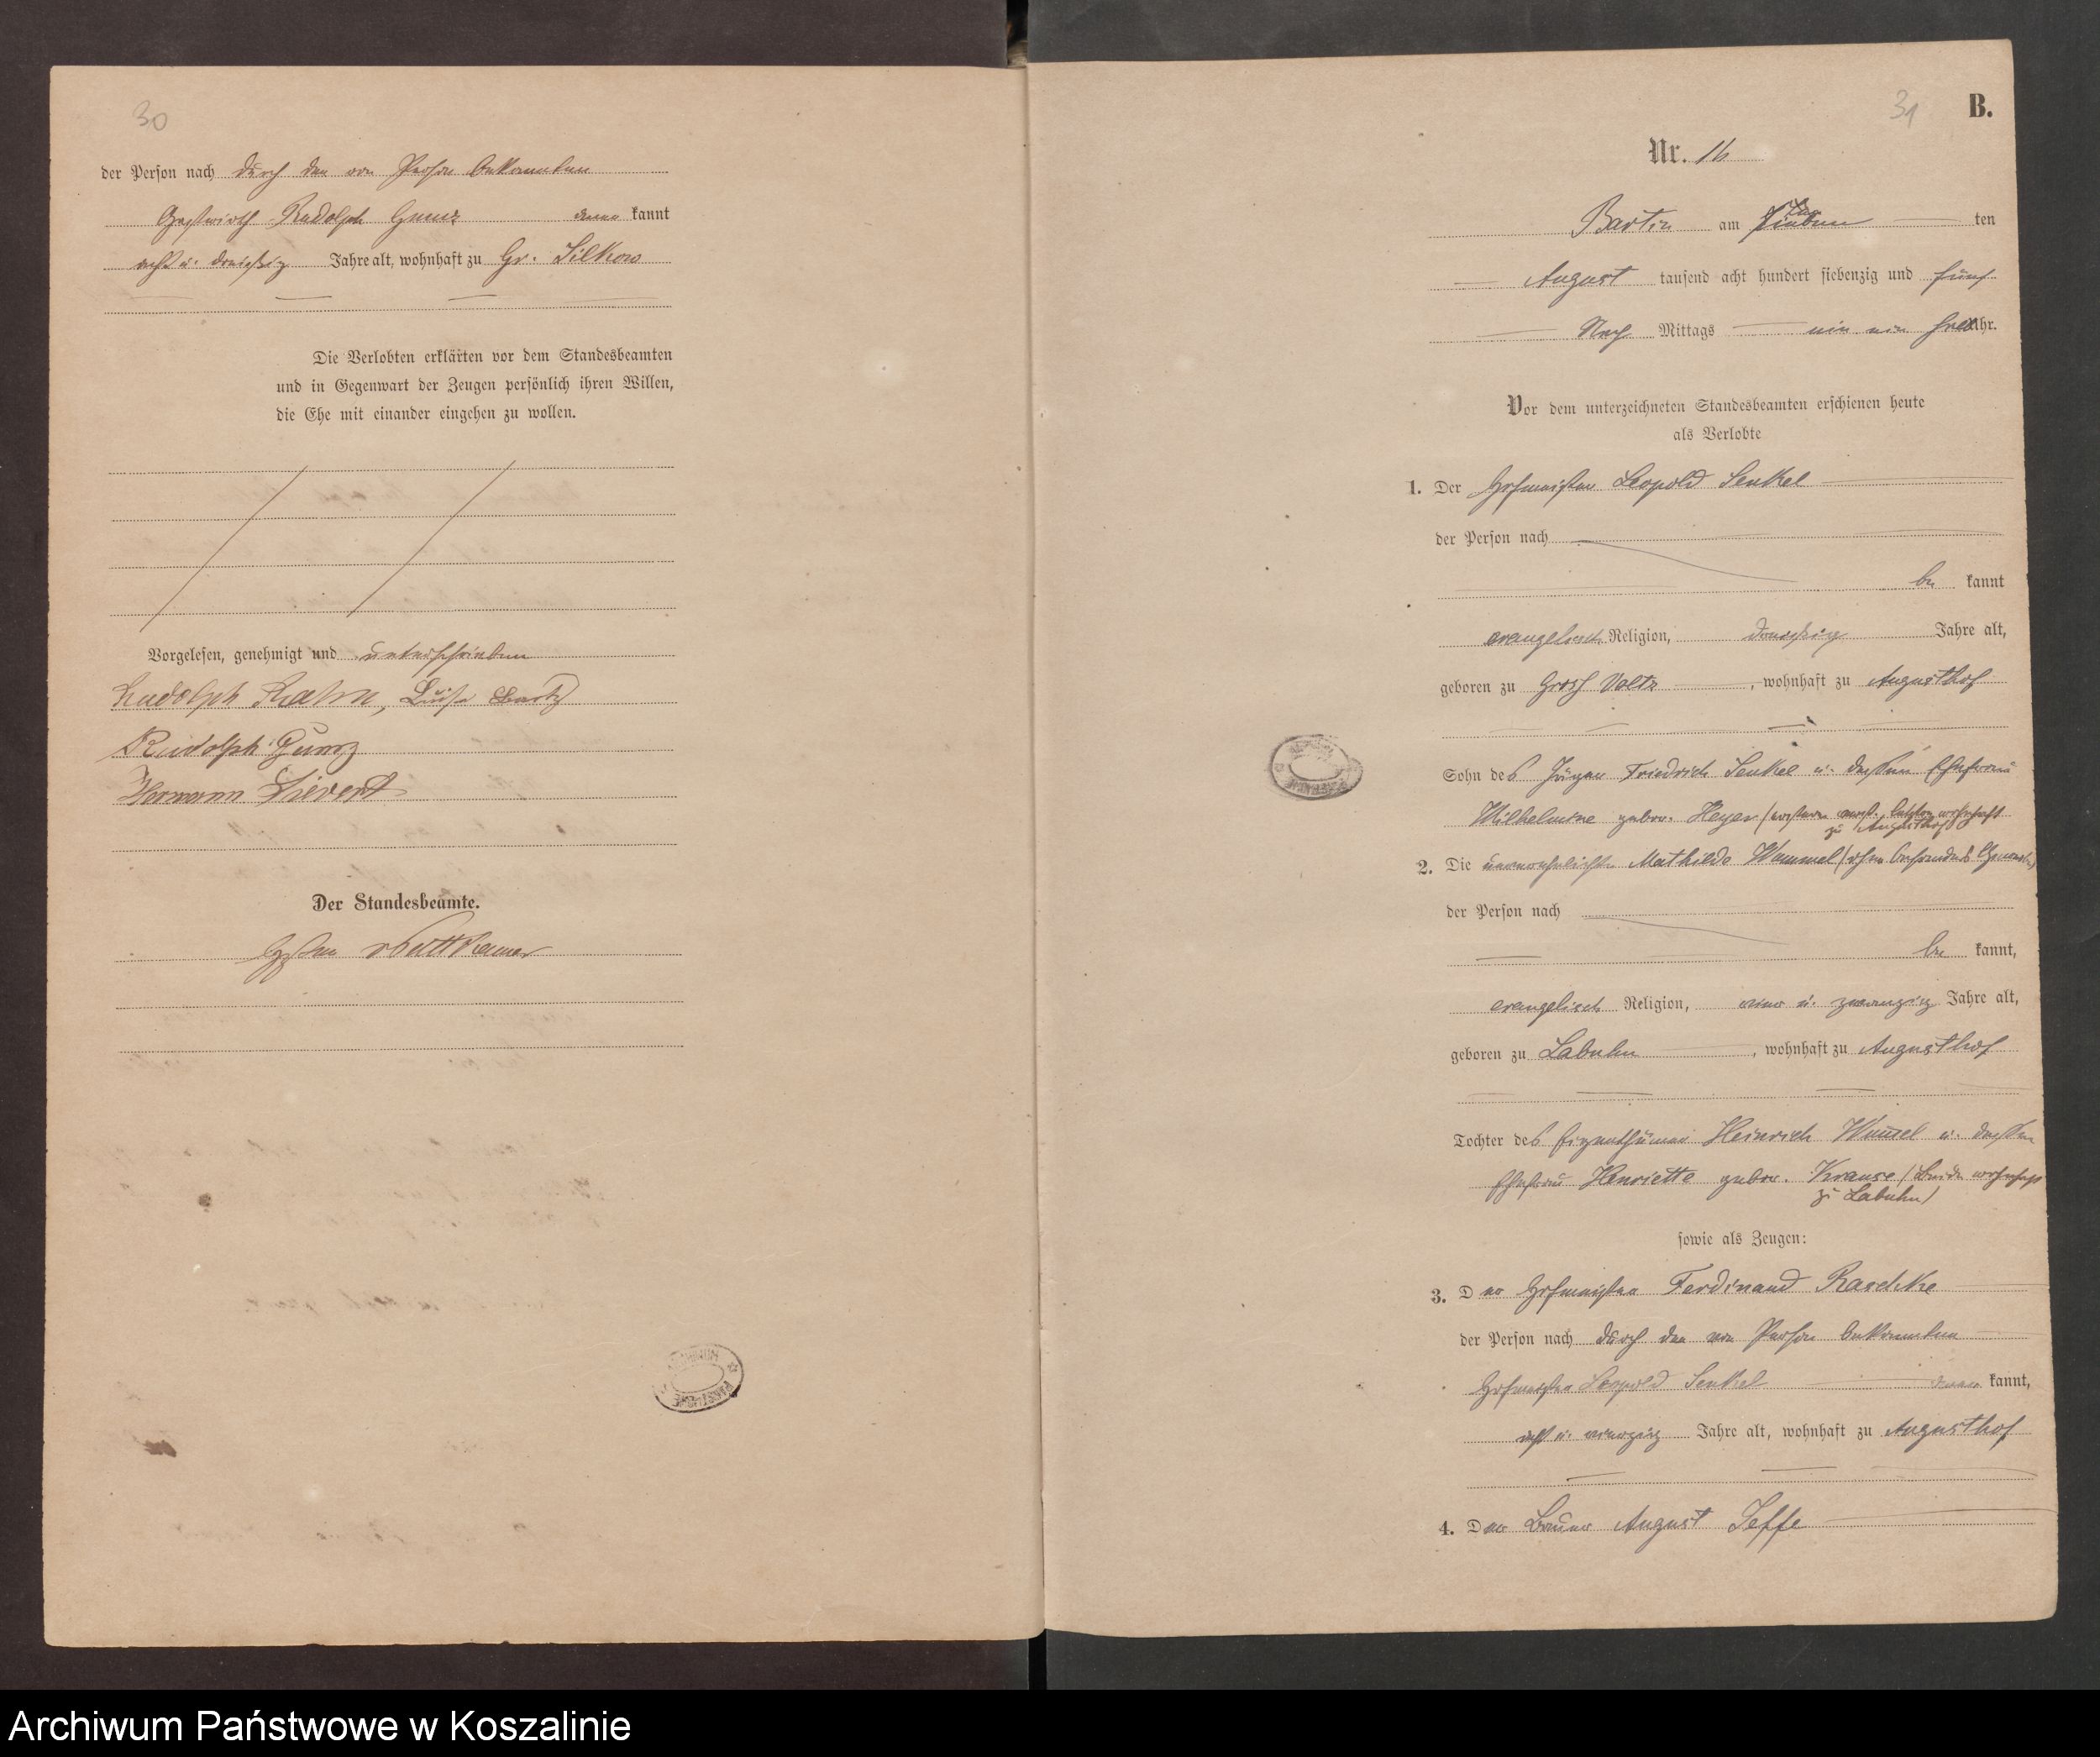 30
der Person nach durch den von Person bekannten
Gastwirth Rudolph Gumz kannt
acht u. dreißig Jahre alt, wohnhaft zu Gr. Silkow
Die Verlobten erklärten vor dem Standesbeamten
und in Gegenwart der Zeugen persönlich ihren Willen,
die Ehe mit einander eingehen zu wollen.
Vorgelesen, genehmigt und unterschrieben
Rudolph
Rudolph Gumz
Hermann Sievert
Der Standesbeamte.
31 B.
Nr. 16
Bartin am ten
August tausend acht hundert siebenzig und fünf
Nach Mittags um ein Uhr.
Vor dem unterzeichneten Standesbeamten erschienen heute
als Verlobte
1. Der Hofmeister Leopold Senkel
der Person nach
be kannt
evangelisch Religion, dreißig Jahre alt,
geboren zu Gross Voltz, wohnhaft zu Augusthof
Sohn des Friedrich Senkel u. dessen Ehefrau
Wilhelmine gebor. Heyer
zu Augusthof
2. Die unverehelichte Mathilde Wummel
der Person nach
be kannt,
evangelisch Religion, u. zwanzig Jahre alt,
geboren zu Labuhn, wohnhaft zu Augusthof
Tochter des Eigenthümer Heinrich Wum̄el u. dessen
Ehefrau Henriette gebor. Krause (beide wohnhaft
zu Labuhn)
sowie als Zeugen:
3. Der Hofmeister Ferdinand Raschke
der Person nach durch den von Person bekannten
Hofmeister Leopold Senkel kannt,
acht u. vierzig Jahre alt, wohnhaft zu Augusthof
4. Der Bauer August Jeffe
Archiwum Państwowe w Koszalinie